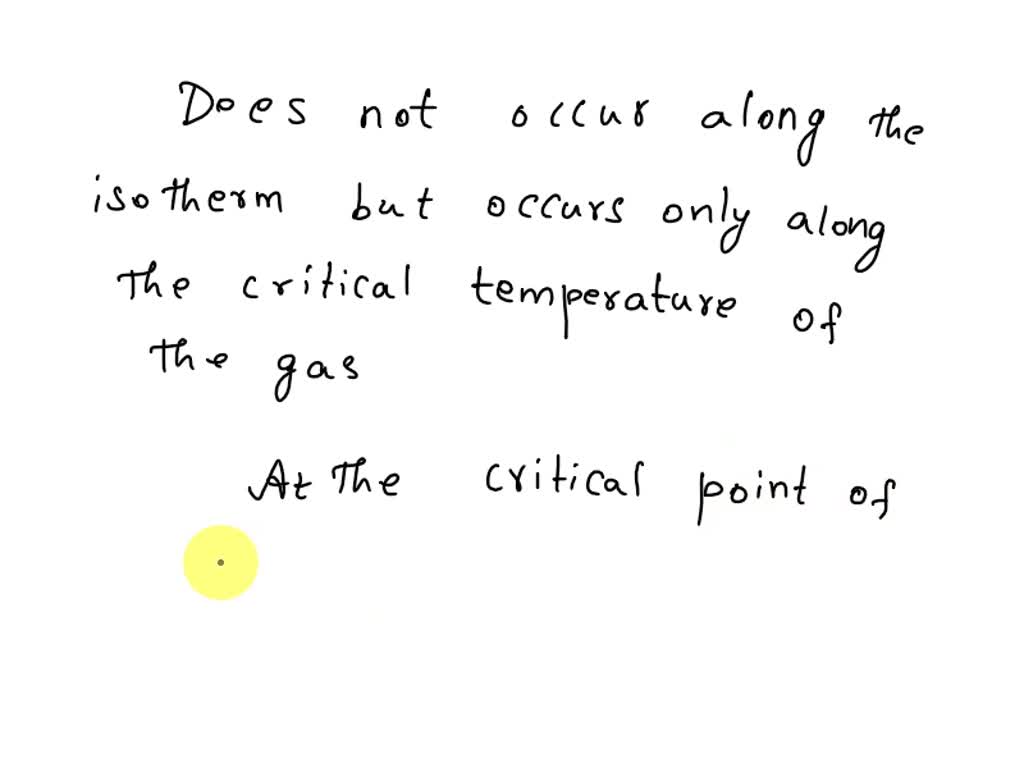 Does not occur along the
isotherm but occurs only along
the critical temperature of
the gas
At the critical point of